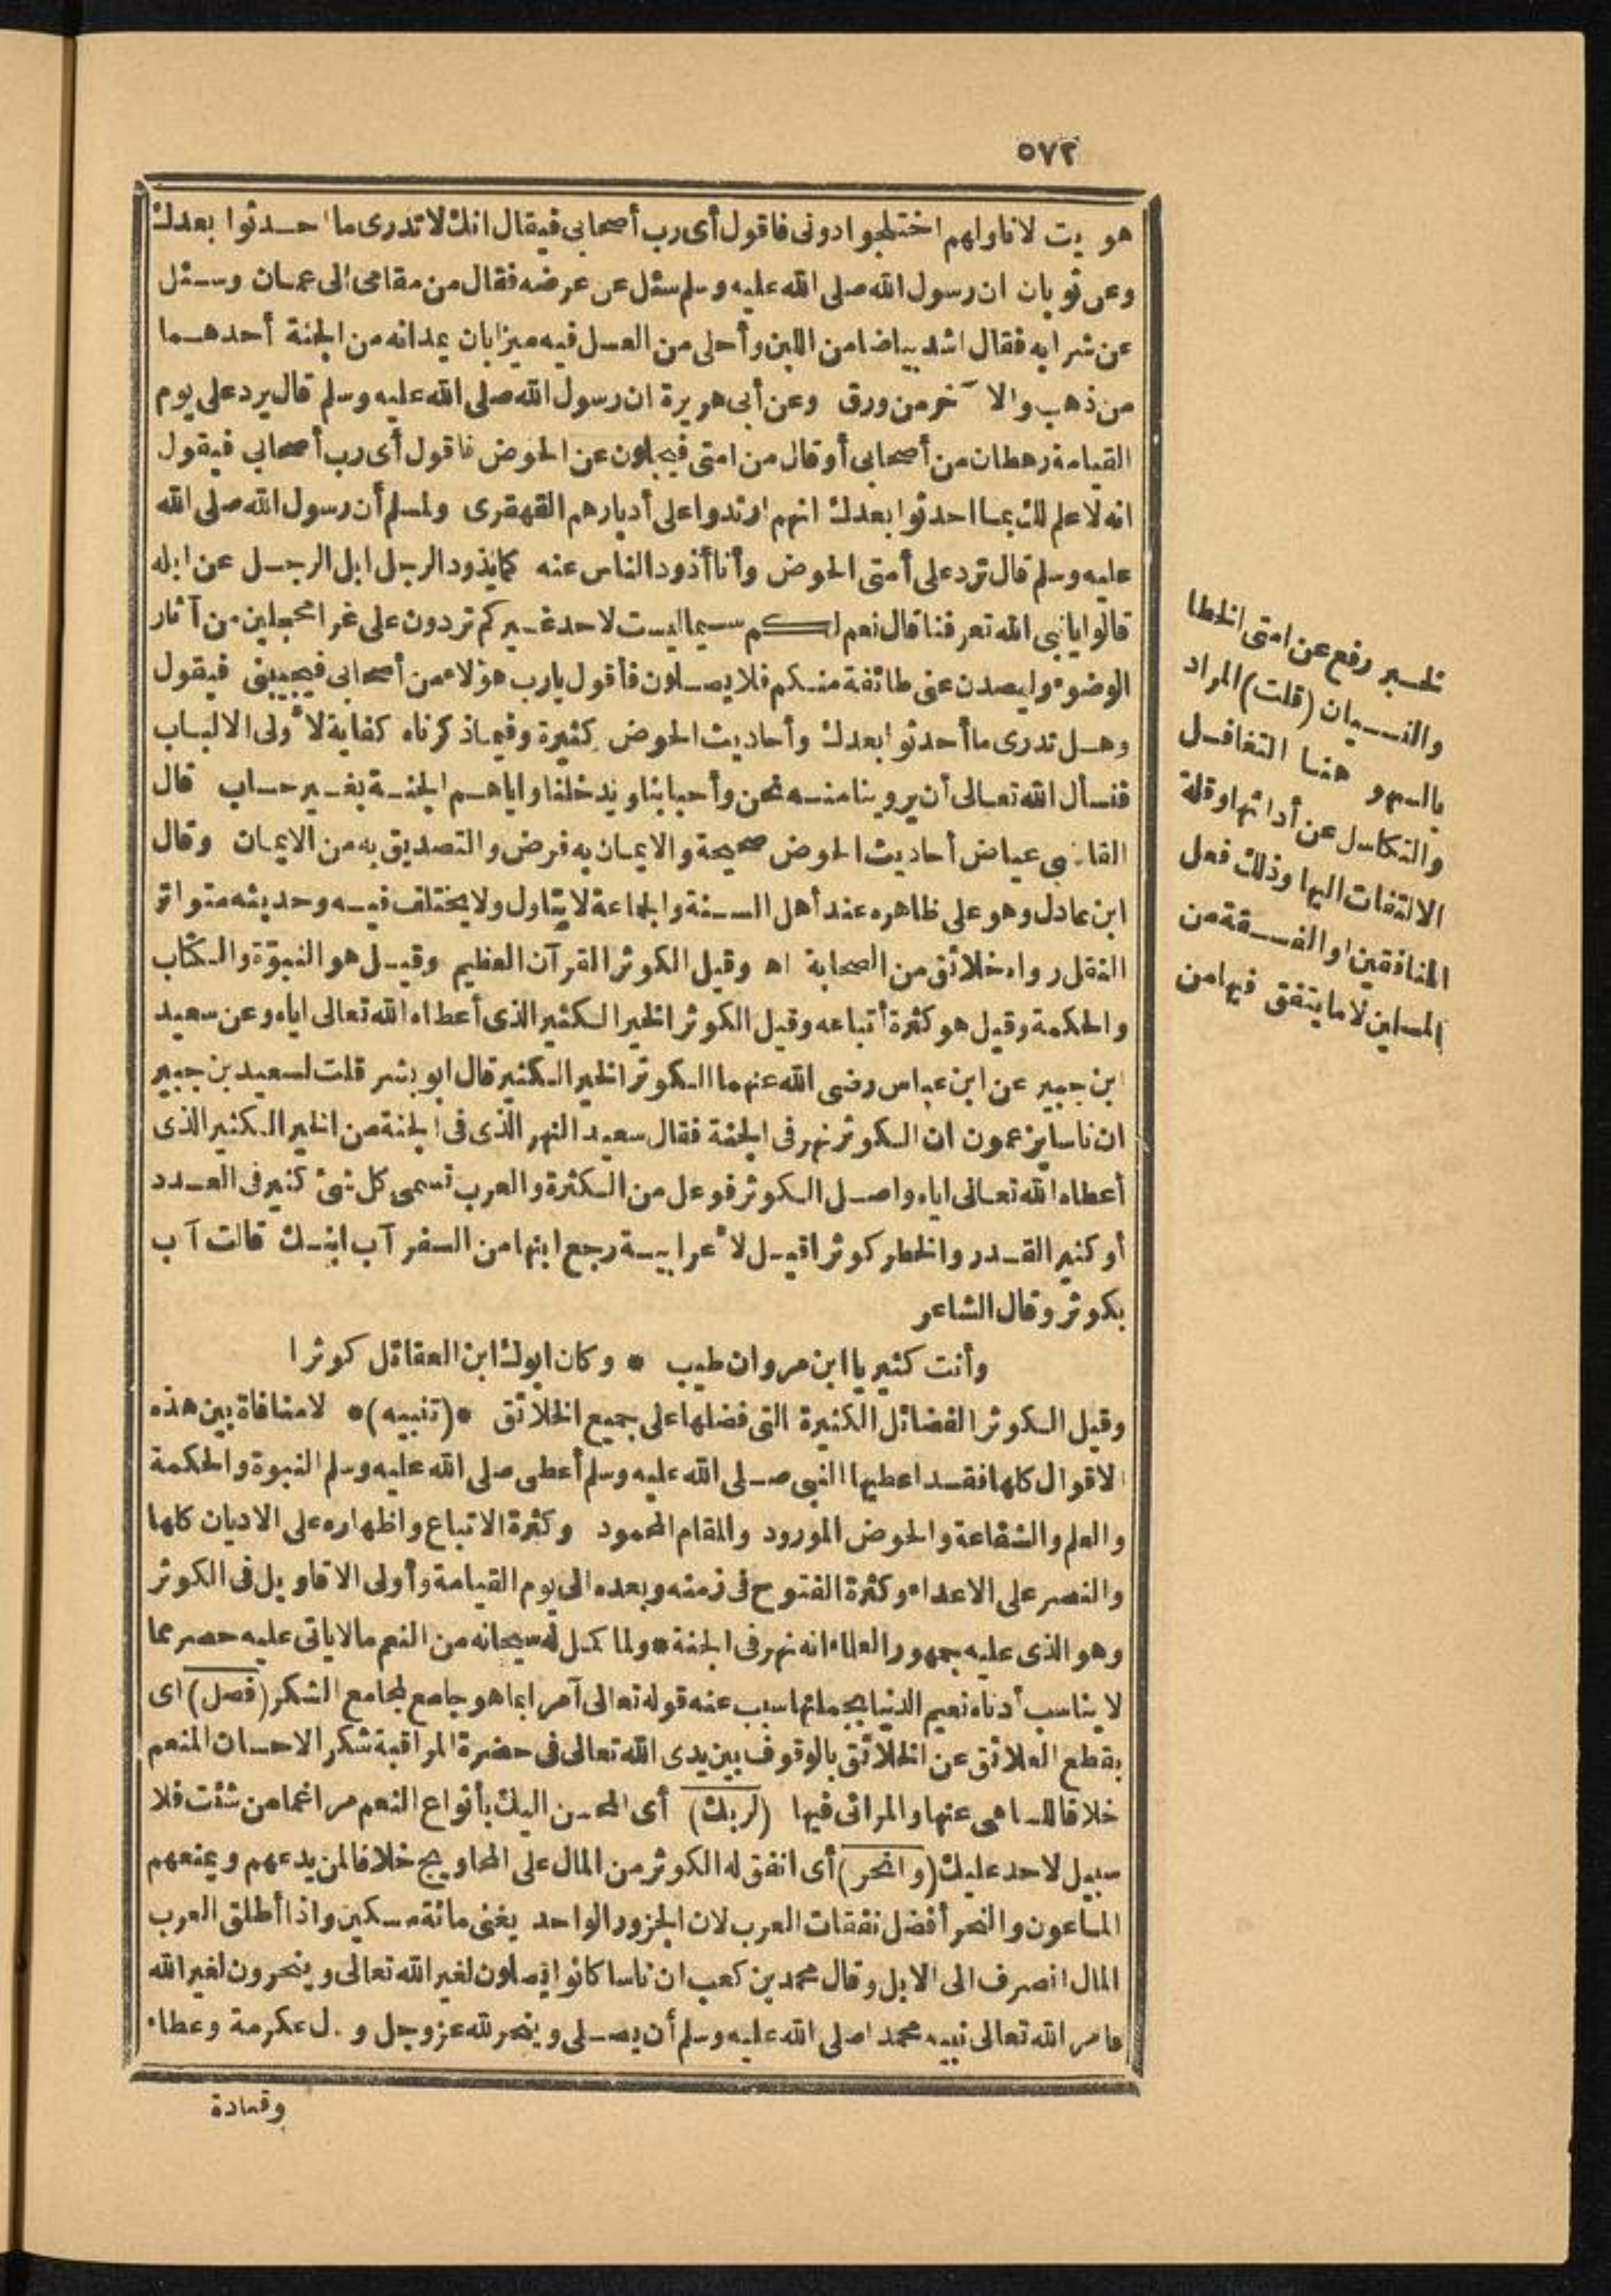 ٥٧٢
هويت لاناولهم اختلجوا دونى فاقول أى رب أصحابى فيقال انك لا تدرى ما احدثوا بعدك
وعن ثوبان ان رسول الله صلى الله عليه وسلم سئل عن عرضه فقال من مقامى الى عمان وسئل
عن شرابه فقال اشد بياضا من اللبن وأحلى من العسل فيه ميزابان يمدانه من الجنة أحدهما
من ذهب والآخر من ورق وعن أبى هريرة ان رسول الله صلى الله عليه وسلم قال يرد على يوم
القيامة رهطان من أصحابى أو قال من امتى فيجلون عن الحوض فاقول أى رب أصحابى فيقول
انه لا علم لك بما احدثوا بعدك انهم ارتدوا على أدبارهم القهقرى ولمسلم أن رسول الله صلى الله
عليه وسلم قال ترد على أمتى الحوض وأنا أذود الناس عنه كما يذود الرجل ابل الرجل عن ابله
قالوا يا نبى الله تعرفنا قال نعم لكم سيما ليست لاحد غيركم تردون على غرا محجلين من آثار
الوضوء وليصدن عنى طائفة منكم فلا يصلون فأقول يا رب هؤلاء من أصحابى فيجيبنى فيقول
وهل تدرى ما أحدثوا بعدك وأحاديث الحوض كثيرة وفيما ذكرناه كفاية لأولى الالباب
فنسأل الله تعالى أن يروينا منه نحن وأحبابنا ويدخلنا واياهم الجنة بغير حساب قال
القاضى عياض أحاديث الحوض صحيحة والايمان به فرض والتصديق به من الايمان وقال
ابن عادل وهو على ظاهره عند أهل السنة والجماعة لا يتاول ولا يختلف فيه وحديثه متواتر
النقل رواه خلائق من الصحابة اه وقيل الكوثر القرآن العظيم وقيل هو النبوّة والكتاب
والحكمة وقيل هو كثرة أتباعه وقيل الكوثر الخير الكثير الذى أعطاه الله تعالى اياه وعن سعيد
ابن جبير عن ابن عباس رضى الله عنهما الكوثر الخير الكثير قال ابو بشر قلت لسعيد بن جبير
ان ناسا يزعمون ان الكوثر نهر فى الجنة فقال سعيد النهر الذى فى الجنة من الخير الكثير الذى
أعطاه الله تعالى اياه واصل الكوثر فوعل من الكثرة والعرب تسمى كل شئ كثير فى العدد
أو كثير القدر والخطر كوثرا قيل لأعرابية رجع ابنها من السفر آب ابنك قالت آب
بكوثر وقال الشاعر
وأنت كثير يا ابن مروان طيب * وكان ابوك ابن العقائل كوثرا
وقيل الكوثر الفضائل الكثيرة التى فضلها على جميع الخلائق *(تنبيه)* لا منافاة بين هذه
الاقوال كلها فقد اعطيها النبى صلى الله عليه وسلم أعطى صلى الله عليه وسلم النبوة والحكمة
والعلم والشفاعة والحوض المورود والمقام المحمود وكثرة الاتباع واظهاره على الاديان كلها
والنصر على الاعداء وكثرة الفتوح فى زمنه وبعده الى يوم القيامة وأولى الاقاويل فى الكوثر
وهو الذى عليه جمهور العلماء انه نهر فى الجنة * ولما كمل له سبحانه من النعم مالا ياتى عليه حصر مما
لا يناسب أدناه نعيم الدنيا بجملتها سبب عنه قوله تعالى آمرا بما هو جامع لمجامع الشكر (فصل) اى
بقطع العلائق عن الخلائق بالوقوف بين يدى الله تعالى فى حضرة المراقبة شكر الاحسان المنعم
خلافا للساهى عنها والمرائى فيها (لربك) أى المحسن اليك بأنواع النعم مراغما من شئت فلا
سبيل لاحد عليك (وانحر) أى انفق له الكوثر من المال على المحاويج خلافا لمن يدعهم ويمنعهم
الماعون والنحر أفضل نفقات العرب لان الجزور الواحد يغنى مائة مسكين واذا أطلق العرب
المال انصرف الى الابل وقال محمد بن كعب ان ناسا كانوا يصلون لغير الله تعالى وينحرون لغير الله
فامر الله تعالى نبيه محمدا صلى الله عليه وسلم أن يصلى وينحر لله عز وجل و ل عكرمة وعطاء
وقتادة
لخبر رفع عن امتى الخطا
والنسيان (قلت) المراد
بالسهو هنا التغافل
والتكاسل عن أدائها وقلة
الالتفات اليها وذلك فعل
المنافقين او الفسقة من
المسلمين لا ما يتفق فيها من